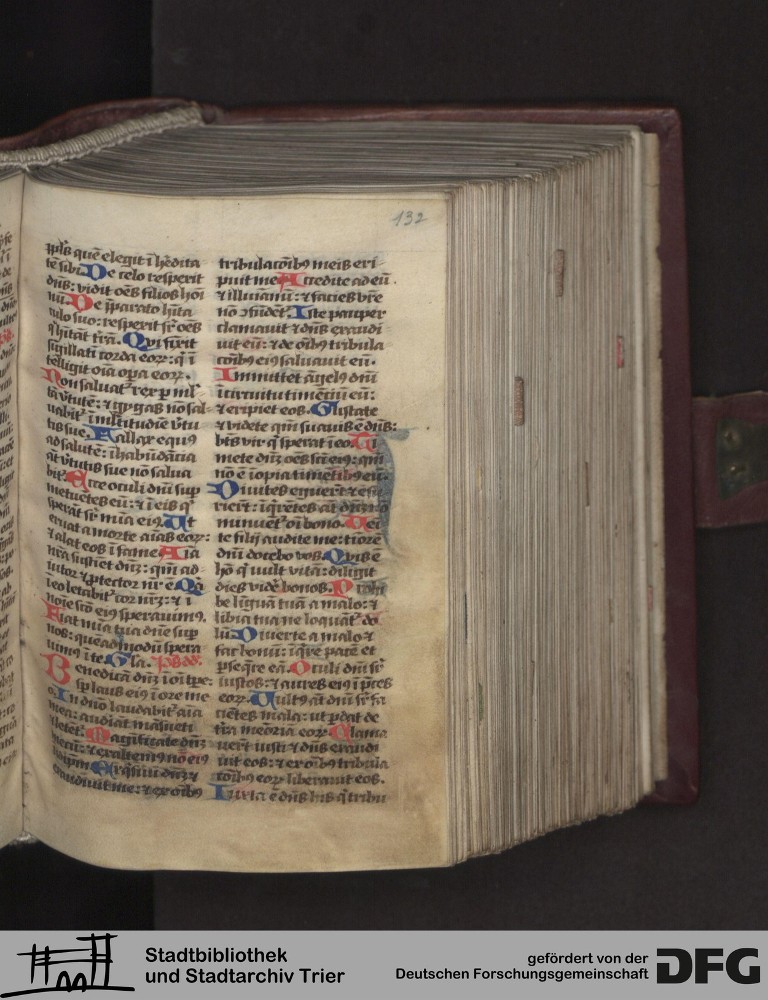 132
pp̄ls quē elegit ī hedita
tē sibi De celo respexit
dn̄s: vidit oēs filios hoī
nū De p̄parato hīta
culo suo: respexit sr̄ oēs
q̄ hītāt trā. Qui finxit
sigillatī corda eoꝝ: q̄ ī
telligit oīa opa eoꝝ.
Non saluat̄ rex p ml̄
tā v̄tutē: ⁊ gygas nō sal
uabit̄ ī ml̄titudīe v̄tu
tis sue. Fallax equꝰ
ad salutē: ī habūdācia
āt v̄tutis sue nō salua
bit̄ Ecce oculi dn̄i sup
metuētes eū: ⁊ ī eis q̄
sperāt sr̄ mīa eiꝰ. Ut
eruat a morte aīas eoꝝ:
⁊ alat eos ī fame Aīa
nr̄a sustīet dn̄ꝫ: qm̄ ad
iutor ⁊ ꝓtector nr̄ ē Qa
ī eo letabit̄ cor nr̄ꝫ: ⁊ ī
noīe scō eiꝰ sperauimꝰ.
Fiat mīa tua dn̄e sup
nos: quēadmodū spera
uimꝰ ī te Gla. Ps dd.
Benedicā dn̄ꝫ ī oī tpe:
sp laus eiꝰ ī ore me
o. In dn̄o laudabit̄ aīa
mea: audiāt māsueti
⁊ letēt̄. Magnificate dn̄ꝫ
mecū: ⁊ exaltemꝰ nōē eiꝰ
ī idipm̄ Exq̄siui dn̄ꝫ ⁊
exaudiuit me: ⁊ ex oībꝰ
tribulacōībꝰ meis eri
puit me Accedite ad eū
⁊ illuīamī: ⁊ facies vr̄e
nō ↄfūdēt̄. Iste pauper
clamauit ⁊ dn̄s exaudi
uit eū: ⁊ de oībꝰ tribula
cōībꝰ eiꝰ saluauit eū.
Inmittet āgelꝰ dn̄i
ī circuitu timēciū eū:
⁊ eripiet eos. Gustate
⁊ videte qm̄ suauis ē dn̄s:
btūs vir q̄ sperat ī eo. Ti
mete dn̄ꝫ oēs scī eiꝰ: qm̄
nō ē īopia timētibꝰ eū.
Diuites eguerūt ⁊ esu
rierūt: īq̄rētes āt dn̄ꝫ nō
minuēt̄ oī bono. Veī
te filij audite me: timorē
dn̄i docebo vos. Quis ē
hō q̄ vult vitā: diligit
dies vidē bonos. Prohi
be līguā tuā a malo: ⁊
labia tua ne loquāt̄ do
lū Diuerte a malo ⁊
fac bonū: īq̄re pacē et
ꝓseq̄re eā. Oculi dn̄i sr̄
iustos: ⁊ aures eiꝰ ī p̄ces
eoꝝ. Vultꝰ āt dn̄i sr̄ fa
ciētes mala: ut ꝓdat de
trā memoriā eoꝝ. Clama
uerūt iusti ⁊ dn̄s exaudi
uit eos: ⁊ ex oībꝰ tribula
cōībꝰ eoꝝ liberauit eos.
Iuxta ē dn̄s hīs q̄ tribu
Stadtbibliothek
und Stadtarchiv Trier
gefördert von der
Deutschen Forschungsgemeinschaft
DFG